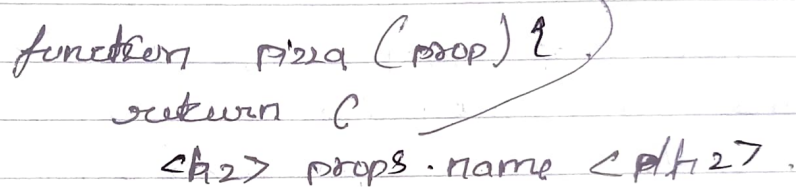 function pizza (prop) {
return (
<h2> props.name </h2>.